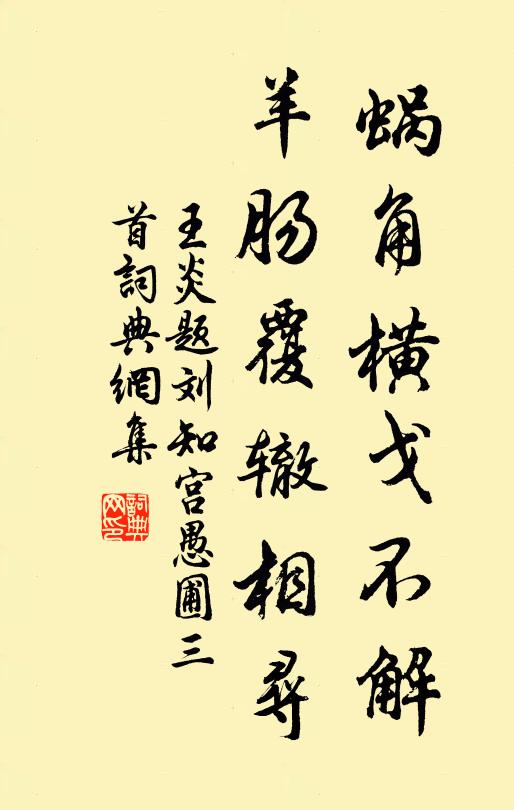 蜗角横戈不解
羊肠覆辙相寻
王炎题刘知宫愚圃三
首詞典網集
詞典網印